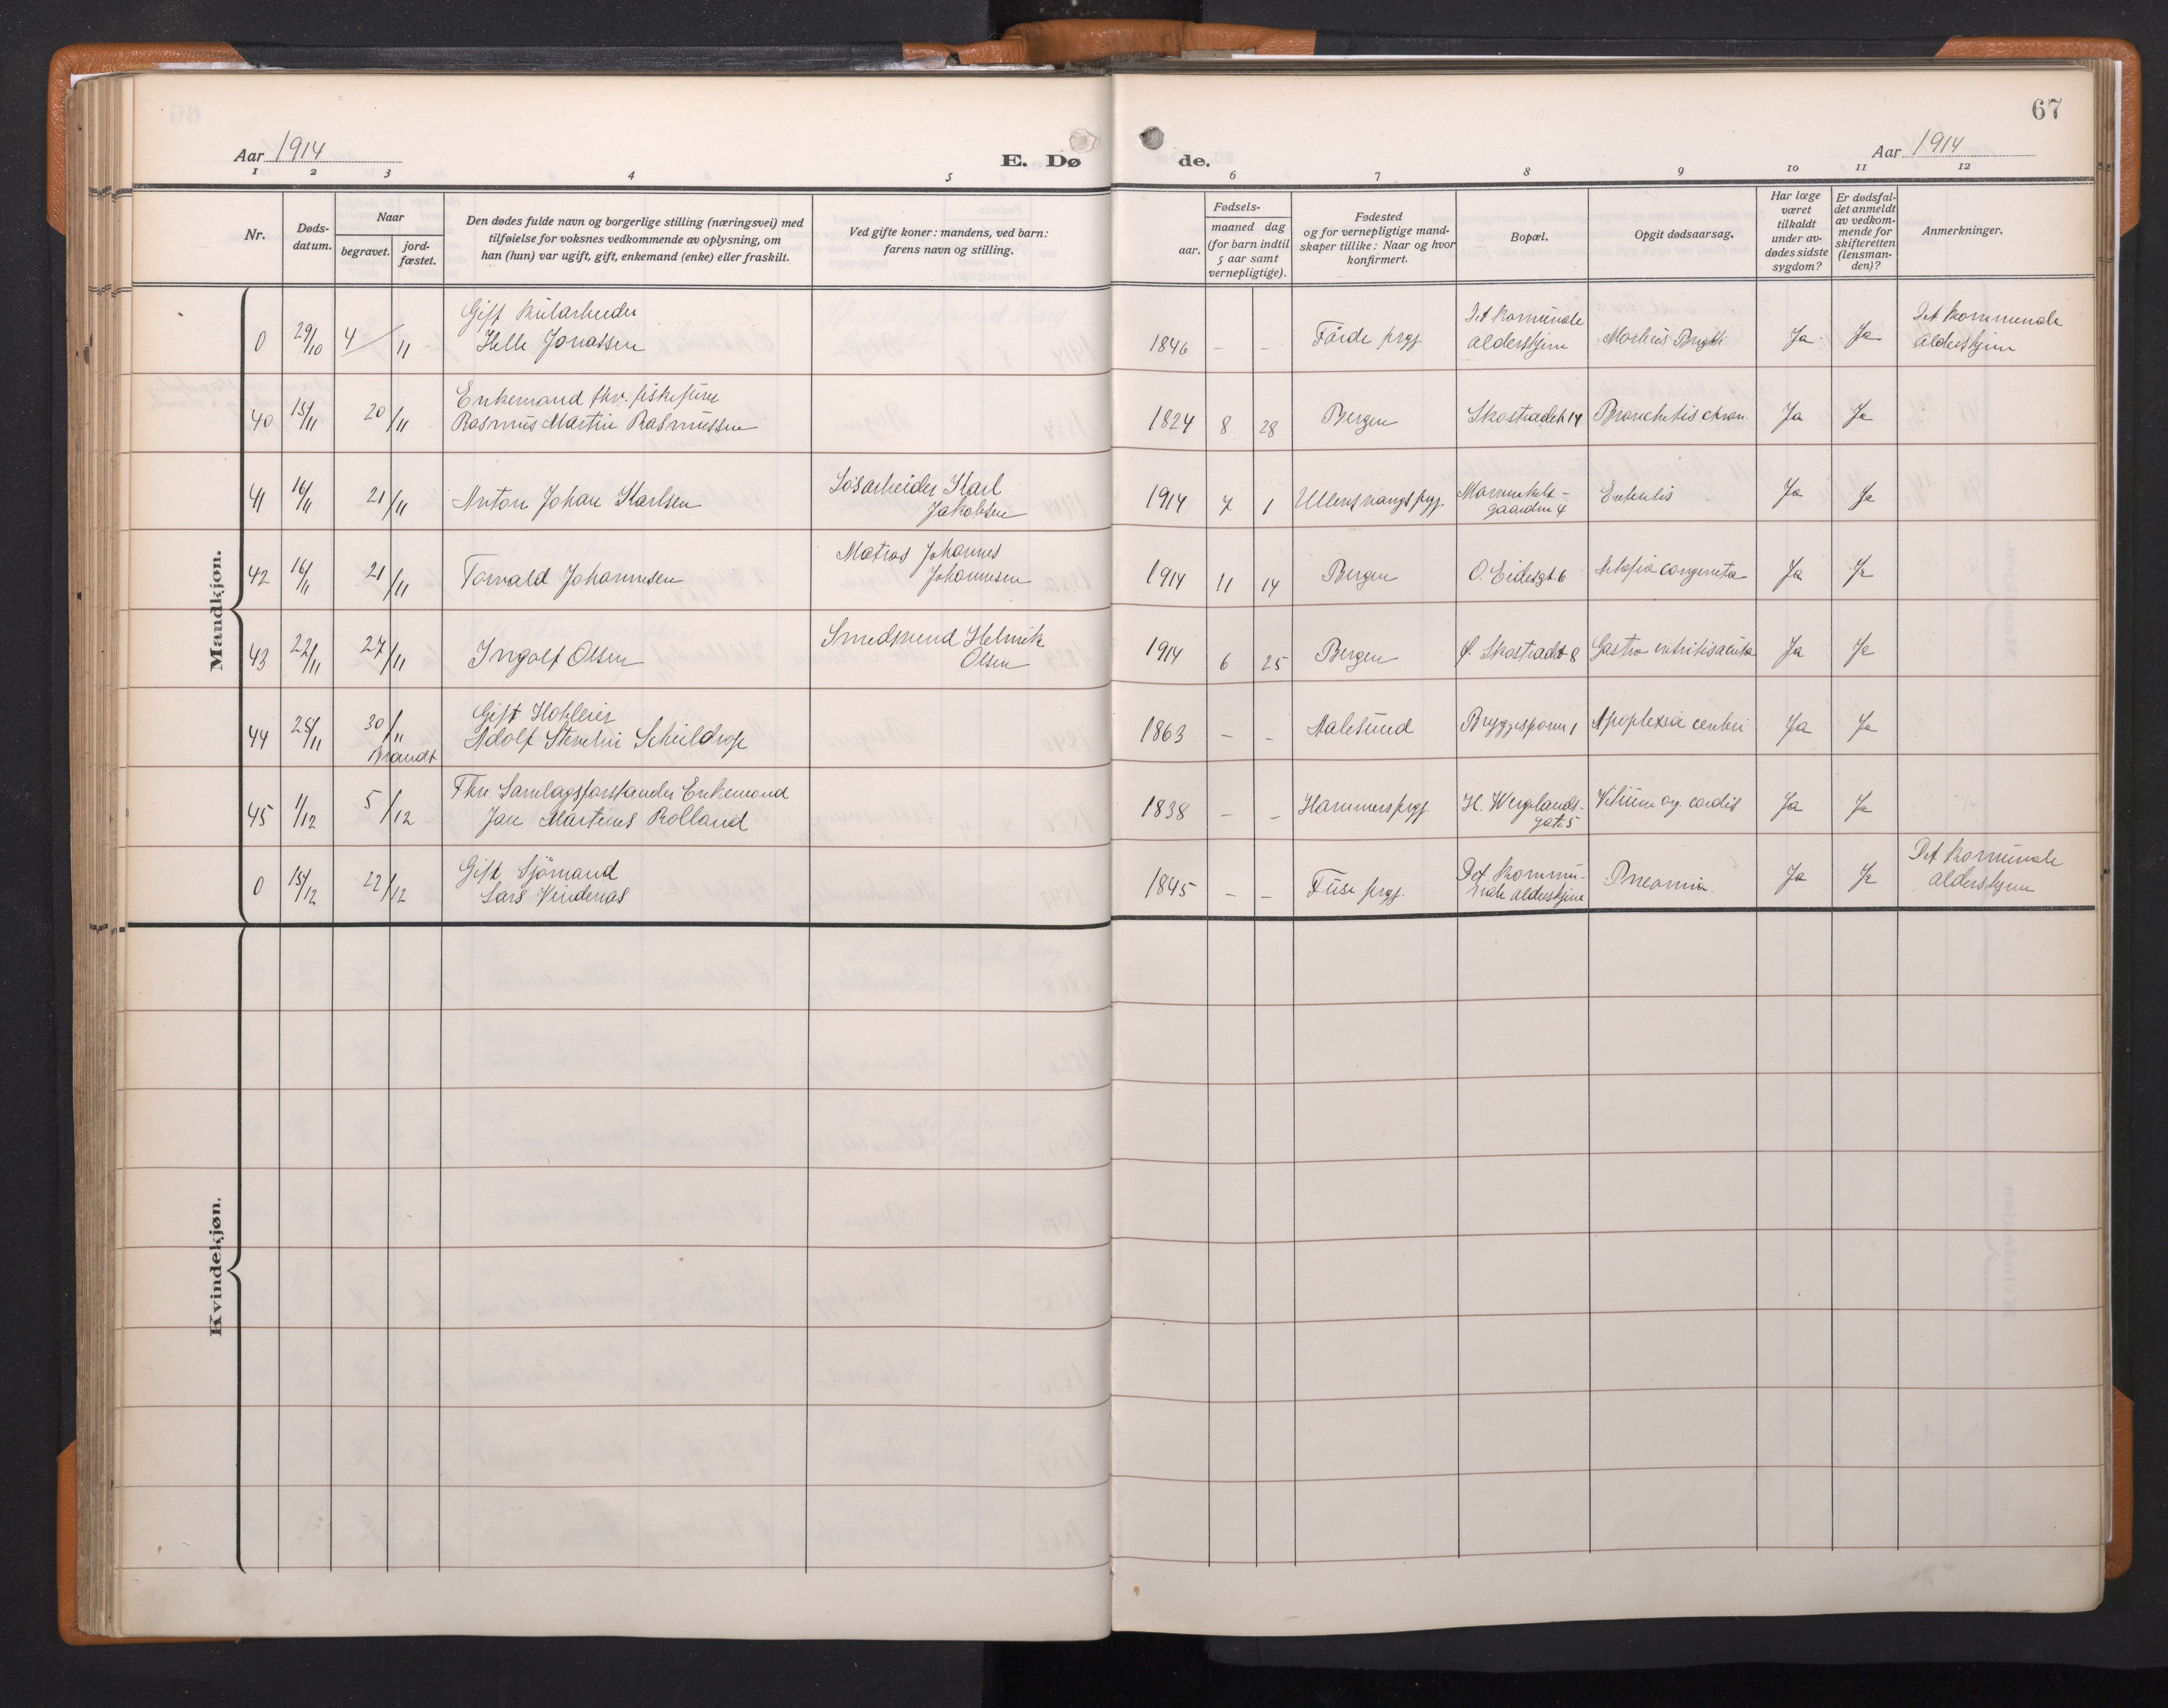 67
Aar 1914
E. Dø
de.
Aar 1914
1 2 3 4 5 6 7 8 9 10 11 12
Nr.
Døds-
datum.
Naar
begravet.
jord-
fæstet.
Den dødes fulde navn og borgerlige stilling (næringsvei) med
tilføielse for voksnes vedkommende av oplysning, om
han (hun) var ugift, gift, enkemand (enke) eller fraskilt.
Ved gifte koner: mandens, ved barn:
farens navn og stilling.
Fødsels-
aar.
maaned dag
(for barn indtil
5 aar samt
vernepligtige).
Fødested
og for vernepligtige mand-
skaper tillike: Naar og hvor
konfirmert.
Bopæl.
Opgit dødsaarsag.
Har læge
været
tilkaldt
under av-
dødes sidste
sygdom?
Er dødsfal-
det anmeldt
av vedkom-
mende for
skifteretten
(lensman-
den)?
Anmerkninger.
Mandkjøn.
Gift
0 29/10 4/11 Helle Jonassen
1846 - - Førde prgj.
Det kommunale
aldershjem
Morbus Brighti
Ja Ja
Det kommunale
aldershjem
Enkemand fhv.
40 15/11 20/11 Rasmus Martin Rasmussen
1824 8 28 Bergen Skostrædet 14 Bronchitis chron. Ja Ja
41 16/11 21/11 Anton Johan Karlsen
Løsarbeider Karl
Jakobsen
1914 7 1 Ullensvangs prgj.
gaarden 4
Enteritis Ja Ja
42 16/11 21/11 Torvald Johannesen
Matros Johannes
Johannesen
1914 11 14 Bergen O. Eidesgt 6 congenita Ja Ja
43 22/11 27/11 Ingolf Olsen
Smedsvend
Olsen
1914 6 25 Bergen Ø. Skostrædet 8 Gastro enteritis acuta Ja Ja
Gift
44 25/11 30/11 Adolf Schieldrop
Brandt
1863 - - Aalesund Bryggesporen 1 Apoplexia cerebri Ja Ja
Fhv. Samlagsforstander Enkemand
45 1/12 5/12 Jan Martinus Rolland
1838 - - Hammers prgj. H. Wergelands-
gate 5
Vitium org. cordis Ja Ja
Gift Sjömand
0 15/12 22/12 Lars Vindenas
1845 - - Fuse prgj.
Det kommu-
nale aldershjem
Pneomia Ja Ja
Det kommunale
aldershjem
Kvindekjøn.